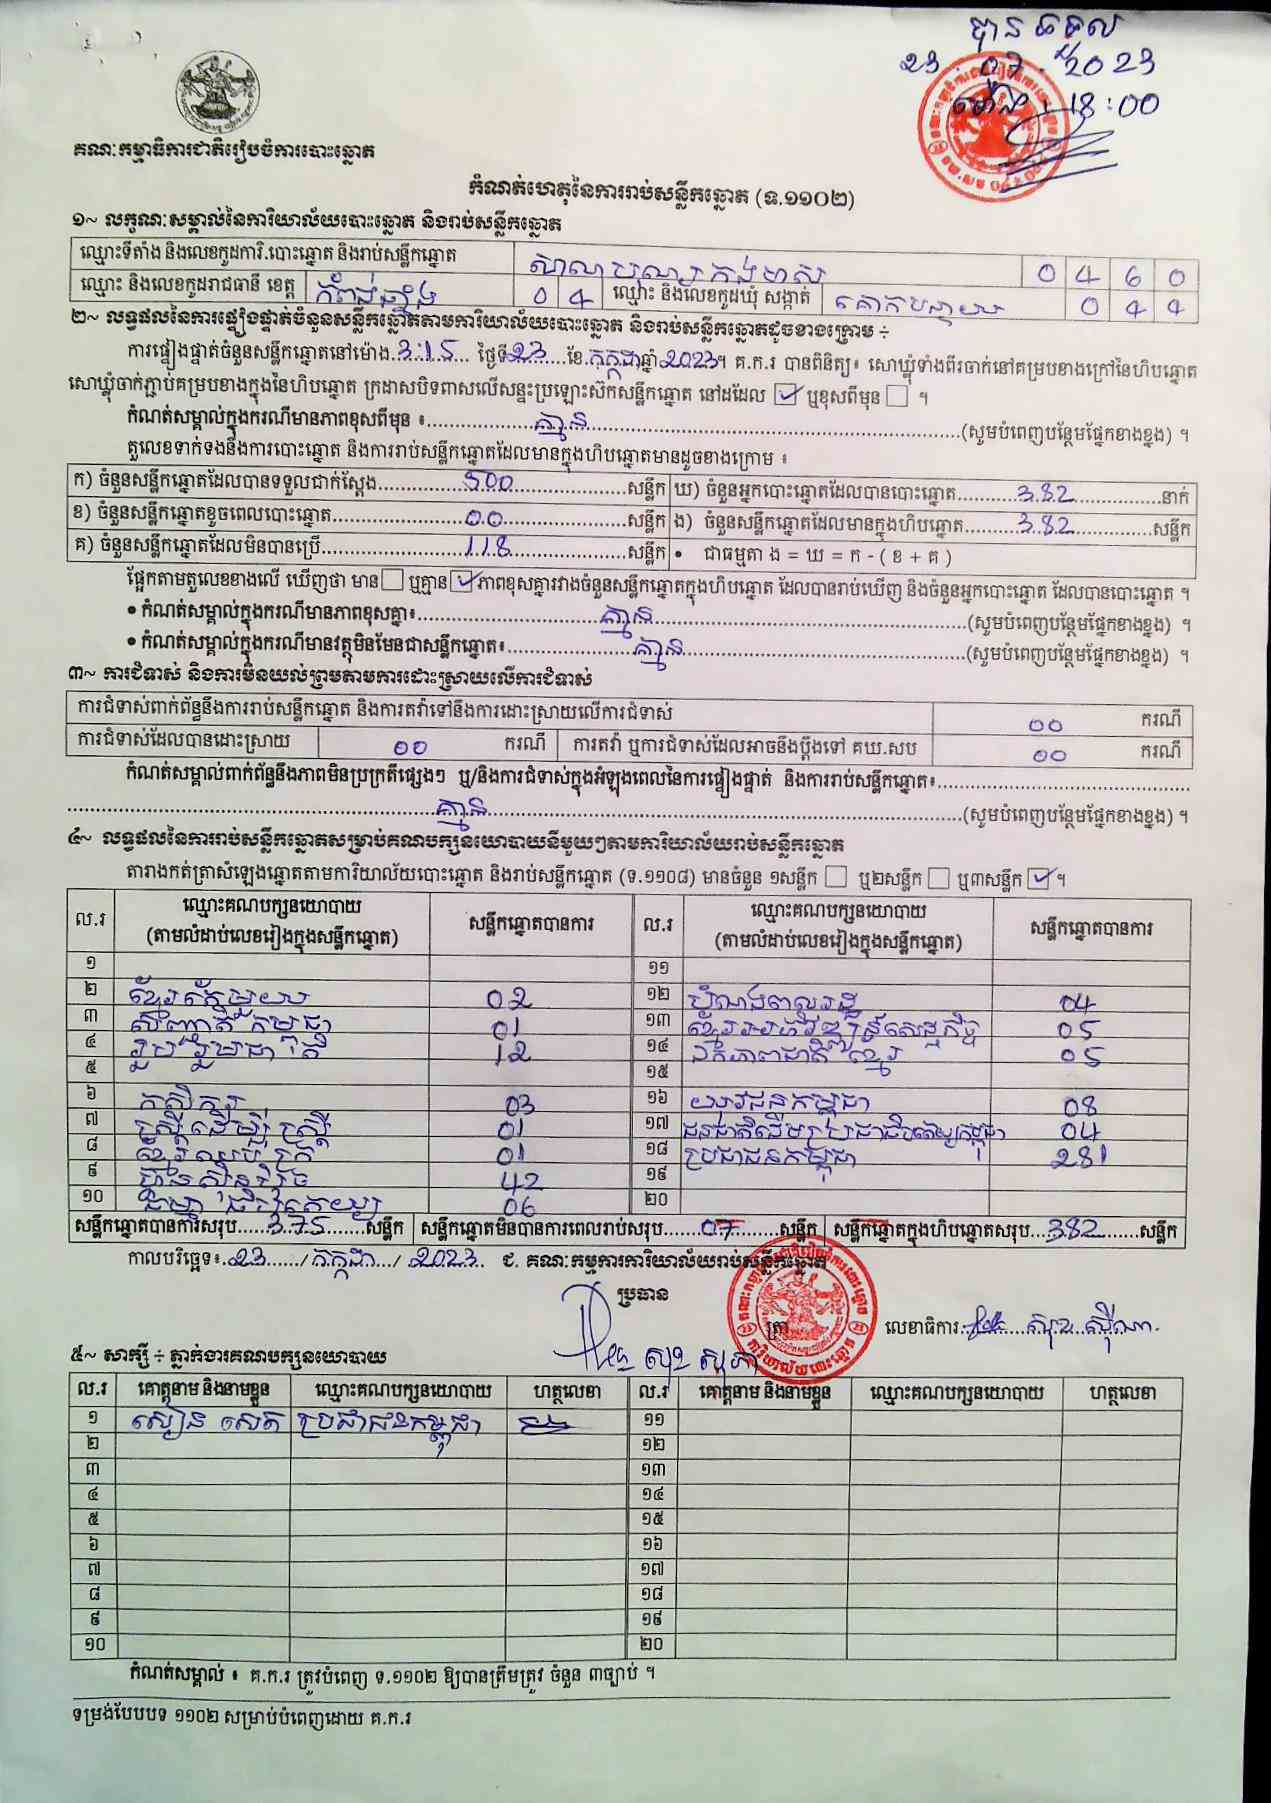 បានទទួល
23 07 2023
ម៉ោង 18:00
គណៈកម្មាធិការជាតិរៀបចំការបោះឆ្នោត
កំណត់ហេតុនៃការរាប់សន្លឹកឆ្នោត (ទ.១១០២)
១~ លក្ខណៈសម្គាល់នៃការិយាល័យបោះឆ្នោត និងរាប់សន្លឹកឆ្នោត
ឈ្មោះទីតាំង និងលេខកូដការិ.បោះឆ្នោត និងរាប់សន្លឹកឆ្នោត 0 4 6 0
ឈ្មោះ និងលេខកូដរាជធានី ខេត្ត កំពង់ឆ្នាំង 0 4 ឈ្មោះ និងលេខកូដឃុំ សង្កាត់ គោកបន្ទាយ 0 4 4
២~ លទ្ធផលនៃការផ្ទៀងផ្ទាត់ចំនួនសន្លឹកឆ្នោតតាមការិយាល័យបោះឆ្នោត និងរាប់សន្លឹកឆ្នោតដូចខាងក្រោម ÷
ការផ្ទៀងផ្ទាត់ចំនួនសន្លឹកឆ្នោតនៅម៉ោង 3:15 ថ្ងៃទី 23 ខែ កក្កដា ឆ្នាំ 2023។ គ.ក.រ បានពិនិត្យ៖ សោឃ្លុំទាំងពីរចាក់នៅគម្របខាងក្រៅនៃហិបឆ្នោត
សោឃ្លុំចាក់ភ្ជាប់គម្របខាងក្នុងនៃហិបឆ្នោត ក្រដាសបិទពាសលើសន្ទះប្រឡោះស៊កសន្លឹកឆ្នោត នៅដដែល ☑ ឬខុសពីមុន ☐ ។
កំណត់សម្គាល់ក្នុងករណីមានភាពខុសពីមុន ៖ គ្មាន (សូមបំពេញបន្ថែមផ្នែកខាងខ្នង) ។
តួលេខទាក់ទងនឹងការបោះឆ្នោត និងការរាប់សន្លឹកឆ្នោតដែលមានក្នុងហិបឆ្នោតមានដូចខាងក្រោម ៖
ក) ចំនួនសន្លឹកឆ្នោតដែលបានទទួលជាក់ស្តែង 500 សន្លឹក ឃ) ចំនួនអ្នកបោះឆ្នោតដែលបានបោះឆ្នោត 382 នាក់
ខ) ចំនួនសន្លឹកឆ្នោតខូចពេលបោះឆ្នោត 00 សន្លឹក ង) ចំនួនសន្លឹកឆ្នោតដែលមានក្នុងហិបឆ្នោត 382 សន្លឹក
គ) ចំនួនសន្លឹកឆ្នោតដែលមិនបានប្រើ 118 សន្លឹក • ជាធម្មតា ង = ឃ = ក - ( ខ + គ )
ផ្អែកតាមតួលេខខាងលើ ឃើញថា មាន ☐ ឬគ្មាន ☑ ភាពខុសគ្នារវាងចំនួនសន្លឹកឆ្នោតក្នុងហិបឆ្នោត ដែលបានរាប់ឃើញ និងចំនួនអ្នកបោះឆ្នោត ដែលបានបោះឆ្នោត ។
• កំណត់សម្គាល់ក្នុងករណីមានភាពខុសគ្នា៖ គ្មាន (សូមបំពេញបន្ថែមផ្នែកខាងខ្នង) ។
• កំណត់សម្គាល់ក្នុងករណីមានវត្ថុមិនមែនជាសន្លឹកឆ្នោត៖ គ្មាន (សូមបំពេញបន្ថែមផ្នែកខាងខ្នង) ។
៣~ ការជំទាស់ និងការមិនយល់ព្រមតាមការដោះស្រាយលើការជំទាស់
ការជំទាស់ពាក់ព័ន្ធនឹងការរាប់សន្លឹកឆ្នោត និងការតវ៉ាទៅនឹងការដោះស្រាយលើការជំទាស់ 00 ករណី
ការជំទាស់ដែលបានដោះស្រាយ 00 ករណី ការតវ៉ា ឬការជំទាស់ដែលអាចនឹងប្តឹងទៅ គឃ.សប 00 ករណី
កំណត់សម្គាល់ពាក់ព័ន្ធនឹងភាពមិនប្រក្រតីផ្សេងៗ ឬ/និងការជំទាស់ក្នុងអំឡុងពេលនៃការផ្ទៀងផ្ទាត់ និងការរាប់សន្លឹកឆ្នោត៖
គ្មាន (សូមបំពេញបន្ថែមផ្នែកខាងខ្នង) ។
៤~ លទ្ធផលនៃការរាប់សន្លឹកឆ្នោតសម្រាប់គណបក្សនយោបាយនីមួយៗតាមការិយាល័យរាប់សន្លឹកឆ្នោត
តារាងកត់ត្រាសំឡេងឆ្នោតតាមការិយាល័យបោះឆ្នោត និងរាប់សន្លឹកឆ្នោត (ទ.១១០៨) មានចំនួន ១សន្លឹក ☐ ឬ២សន្លឹក ☐ ឬ៣សន្លឹក ☑ ។
ល.រ ឈ្មោះគណបក្សនយោបាយ (តាមលំដាប់លេខរៀងក្នុងសន្លឹកឆ្នោត) សន្លឹកឆ្នោតបានការ ល.រ ឈ្មោះគណបក្សនយោបាយ (តាមលំដាប់លេខរៀងក្នុងសន្លឹកឆ្នោត) សន្លឹកឆ្នោតបានការ
១ ១១
២ ខ្មែរតែមួយ 02 ១២ បំណងពលរដ្ឋ 04
៣ សញ្ជាតិកម្ពុជា 01 ១៣ ខ្មែរអភិវឌ្ឍន៍សេដ្ឋកិច្ច 05
៤ រួបរួមជាតិ 12 ១៤ ឯកភាពជាតិខ្មែរ 05
៥ ១៥
៦ កសិករ 03 ១៦ យុវជនកម្ពុជា 08
៧ ស្ត្រីដើម្បីស្ត្រី 01 ១៧ ជនជាតិដើមប្រជាធិបតេយ្យកម្ពុជា 04
៨ ខ្មែរឈប់ក្រ 01 ១៨ ប្រជាជនកម្ពុជា 281
៩ ហ៊្វុនស៊ិនប៉ិច 42 ១៩
១០ ធម្មាធិបតេយ្យ 06 ២០
សន្លឹកឆ្នោតបានការសរុប 375 សន្លឹក សន្លឹកឆ្នោតមិនបានការពេលរាប់សរុប 07 សន្លឹក សន្លឹកឆ្នោតក្នុងហិបឆ្នោតសរុប 382 សន្លឹក
កាលបរិច្ឆេទ៖ 23 / កក្កដា / 2023 ជ. គណៈកម្មការការិយាល័យរាប់សន្លឹកឆ្នោត
ប្រធាន
ត្រា លេខាធិការ
៥~ សាក្សី ÷ ភ្នាក់ងារគណបក្សនយោបាយ
ល.រ គោត្តនាម និងនាមខ្លួន ឈ្មោះគណបក្សនយោបាយ ហត្ថលេខា ល.រ គោត្តនាម និងនាមខ្លួន ឈ្មោះគណបក្សនយោបាយ ហត្ថលេខា
១ សឿន សេត ប្រជាជនកម្ពុជា ១១
២ ១២
៣ ១៣
៤ ១៤
៥ ១៥
៦ ១៦
៧ ១៧
៨ ១៨
៩ ១៩
១០ ២០
កំណត់សម្គាល់ ៖ គ.ក.រ ត្រូវបំពេញ ទ.១១០២ ឱ្យបានត្រឹមត្រូវ ចំនួន ៣ច្បាប់ ។
ទម្រង់បែបបទ ១១០២ សម្រាប់បំពេញដោយ គ.ក.រ